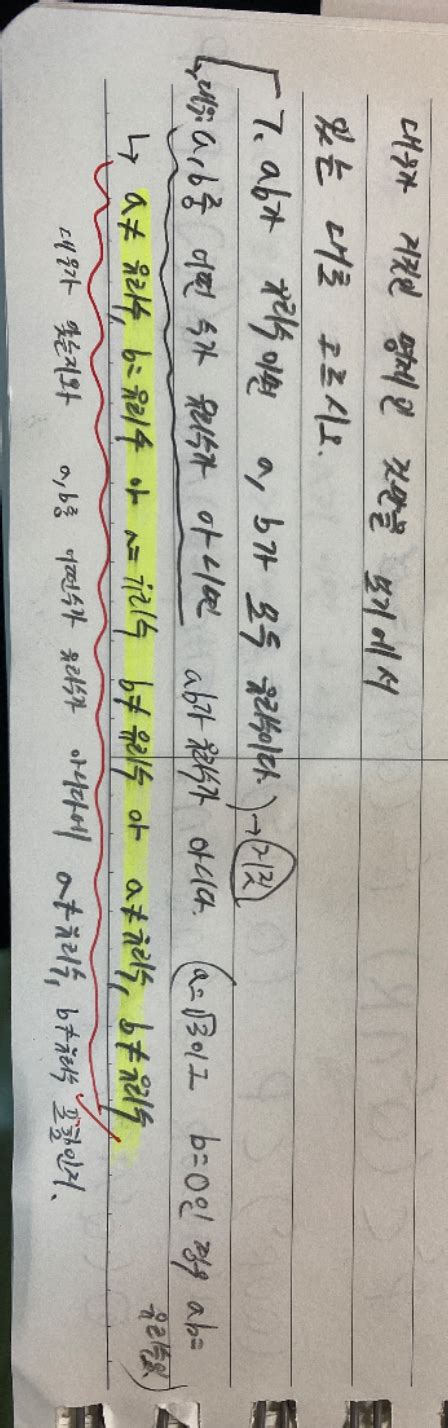 대우가 거짓인 명제인 것만을 보기에서
있는 대로 고르시오.
ㄱ. ab가 유리수이면 a, b가 모두 유리수이다. → 거짓
대우: a, b중 어떤 수가 유리수가 아니면 ab가 유리수가 아니다. (a=√3이고 b=0인 경우 ab=
유리수임)
↳ a≠유리수, b=유리수 or a=유리수 b≠유리수 or a≠유리수, b≠유리수
대우가 맞는지와 a, b중 어떤수가 유리수가 아니다에 a≠유리수, b≠유리수 포함인지.